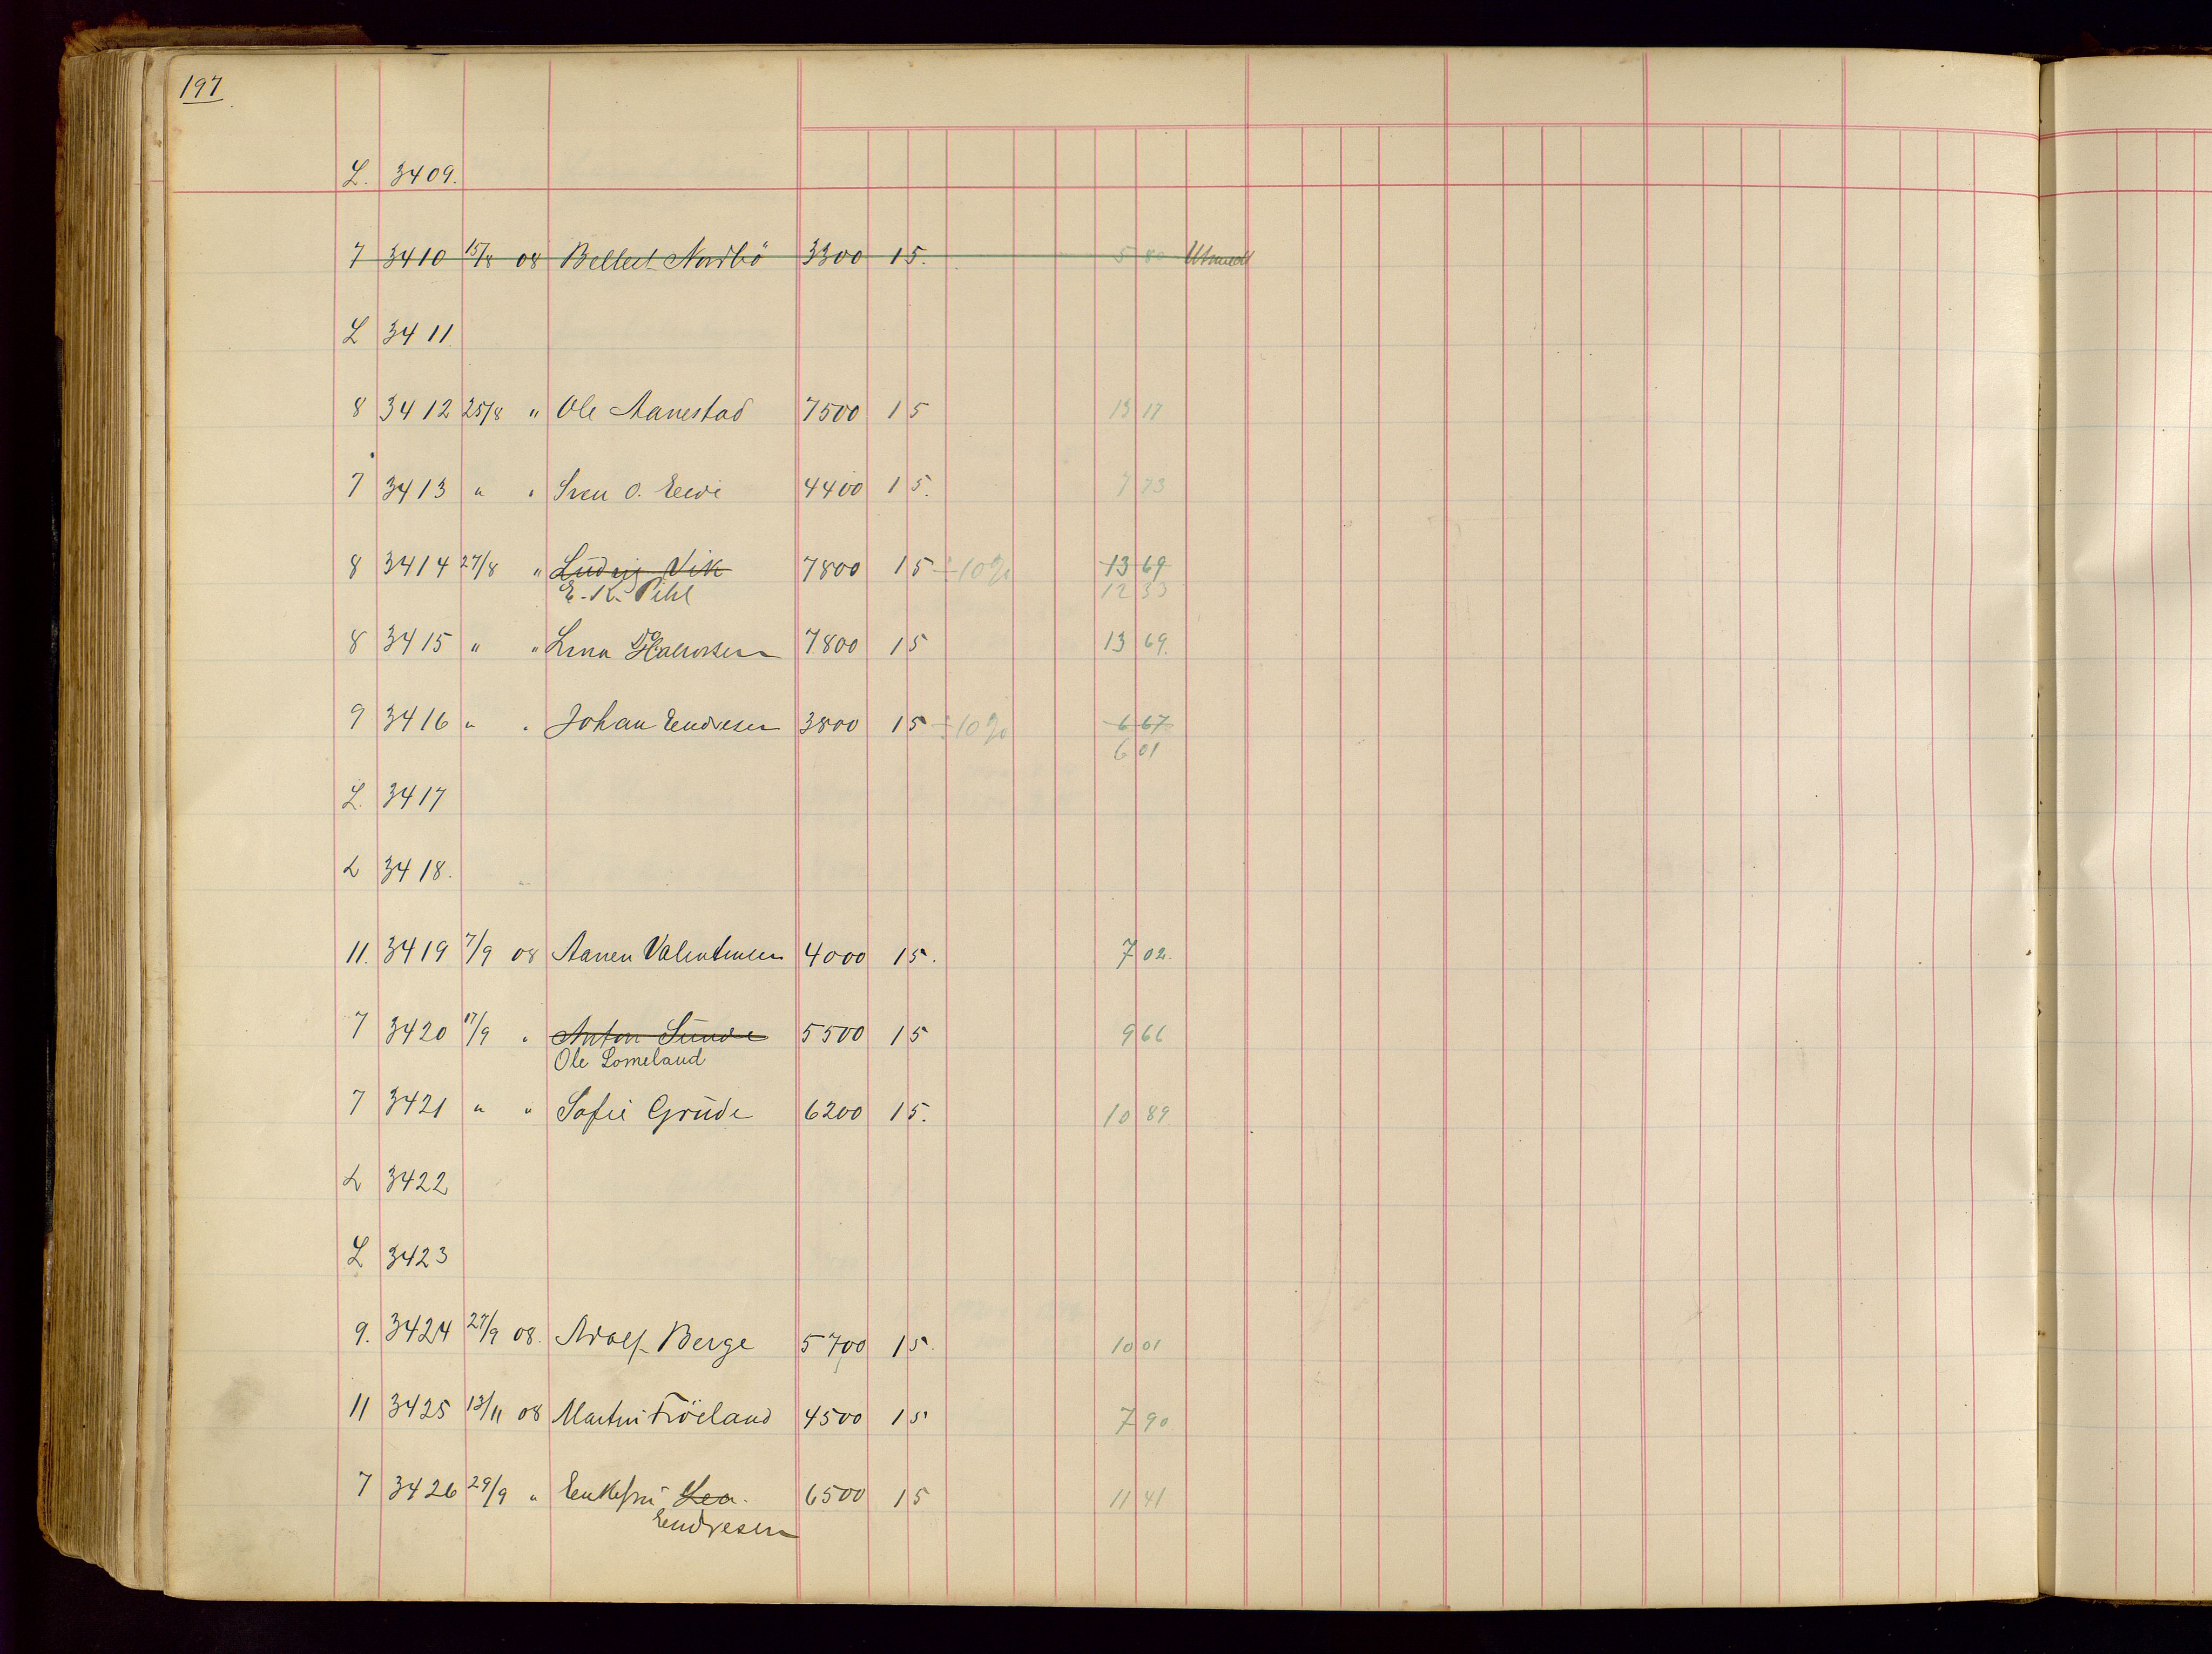 197
L. 3409.
7 3410 15/8 08 Bellest Nordbö 3300 15. 5 80 Utmeldt
L 3411.
8 3412 25/8 " Ole Aanestad 7500 15 13 17
7 3413 " " Sven O. Eeide 4400 15. 7 73
8 3414 27/8 " Ludvig Vik 7800 15 ÷ 10% 13 69
E. K. Pihl 12 33
8 3415 " " Lina Halvorsen 7800 15 13 69.
9 3416 " " Johan Endresen 3800 15 ÷ 10% 6 67
6 01
L. 3417
L 3418.
11. 3419 7/9 08 Aanen Valentinsen 4000 15. 7 02.
7 3420 17/9 " Anton Sunde 5500 15 9 66
Ole Lomeland
7 3421 " " Sofie Grude 6200 15. 10 89
L 3422
L 3423
9. 3424 27/9 08. Adolf Berge 5700 15. 10 01
11 3425 13/11 08 Martin Fröiland 4500 15 7 90
7 3426 29/9 " Enkefru Lea. 6500 15 11 41
Endresen